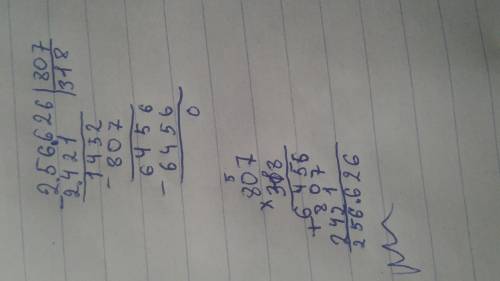 256.626 | 807
- 2.421 | 318
1432
- 807
6456
- 6456
0
5
807
x 318
6456
+ 807
2421
256.626